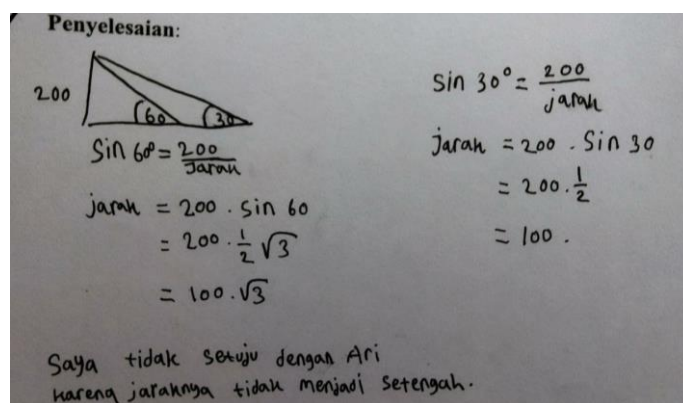 Penyelesaian:
200
60
30
Sin 60° = 200/Jarak
jarak = 200 . sin 60
= 200 . 1/2 √3
= 100 . √3
Sin 30° = 200/jarak
jarak = 200 . Sin 30
= 200 . 1/2
= 100 .
Saya tidak setuju dengan Ari
karena jaraknya tidak menjadi setengah.